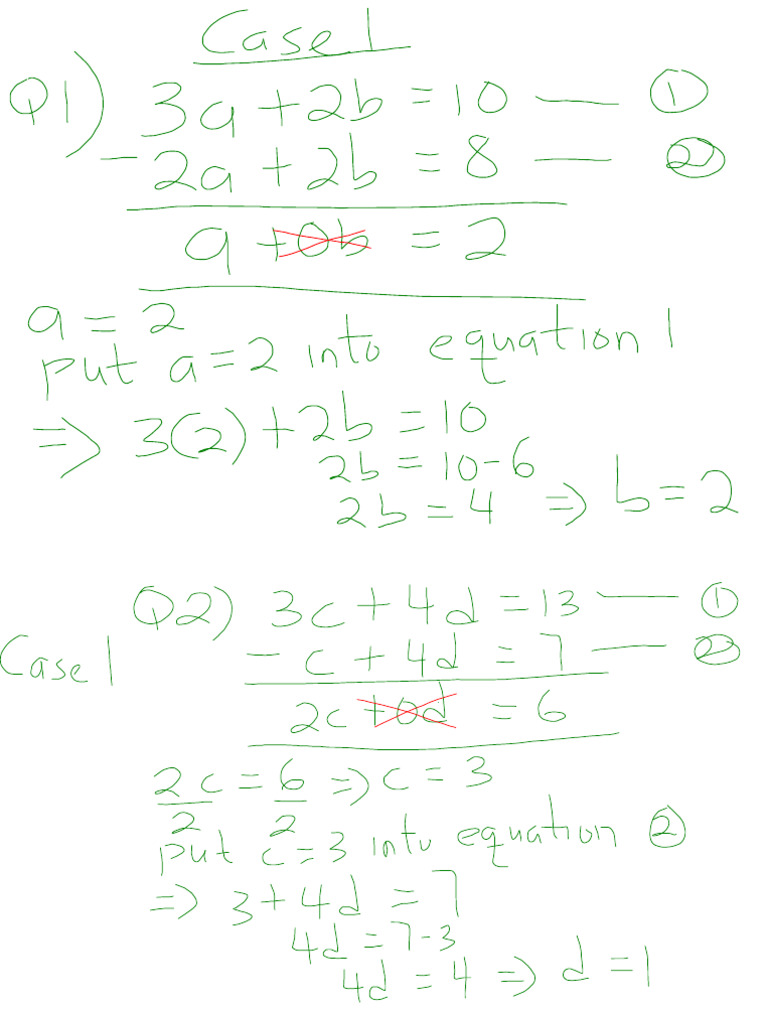 Case 1
Q1) 3a + 2b = 10 —— ①
- 2a + 2b = 8 —— ②
a + 0b = 2
a = 2
put a = 2 into equation 1
⇒ 3(2) + 2b = 10
2b = 10 - 6
2b = 4 ⇒ b = 2
Q2) 3c + 4d = 13 —— ①
Case 1 - c + 4d = 7 —— ②
2c + 0d = 6
2c/2 = 6/2 ⇒ c = 3
put c = 3 into equation ②
⇒ 3 + 4d = 7
4d = 7 - 3
4d = 4 ⇒ d = 1